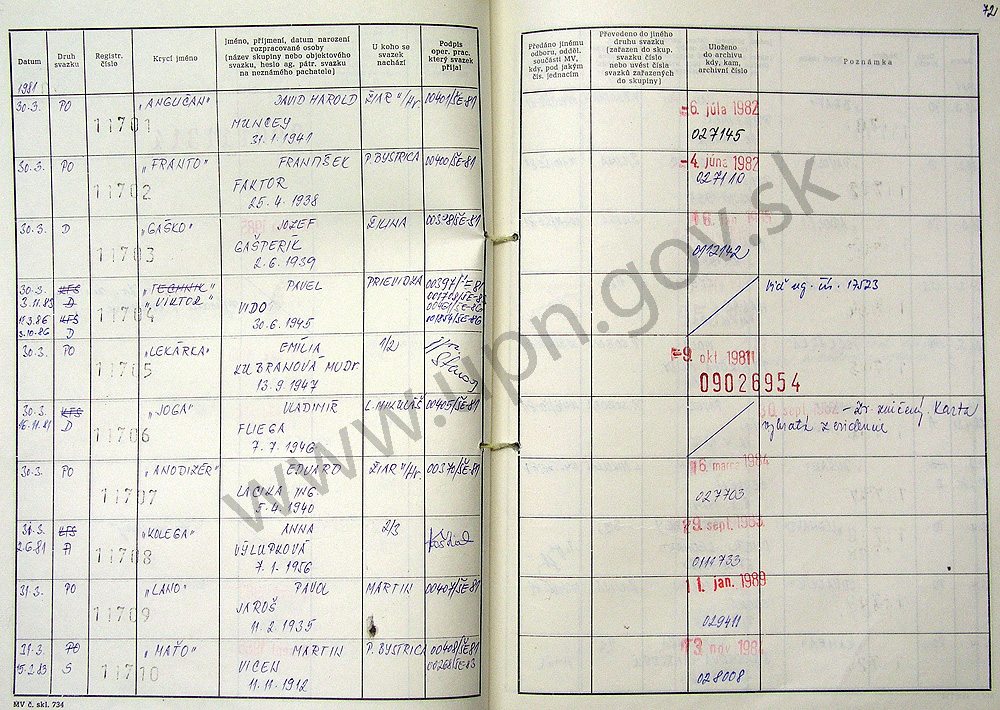 72
Datum
Druh svazku
Registr. číslo
Krycí jméno
Jméno, příjmení, datum narození
rozpracované osoby
(název skupiny nebo objektového
svazku, heslo ag. pátr. svazku
na neznámého pachatele)
U koho se
svazek
nachází
Podpis
oper. prac.
který svazek
přijal
Předáno jinému
odboru, odděl.
součásti MV,
kdy, pod jakým
čís. jednacím
Převedeno do jiného
druhu svazku
(zařazen do skup.
svazku číslo
nebo uvést čísla
svazků zařazených
do skupiny)
Uloženo
do archivu
kdy, kam,
archivní číslo
Poznámka
1981
30.3. PO 11701 „ANGLIČAN" DAVID HAROLD ŽIAR n/Hr. 00401/ŠE-81
MUNCEY
31.1.1941
-6. júla 1982
027145
30.3. PO 11702 „FRANTO" FRANTIŠEK P. BYSTRICA 00400/ŠE-81
FAKTOR
25.4.1938
-4. júna 1982
027110
30.3. D 11703 „GAŠKO" JOZEF ŽILINA 00398/ŠE-81
GAŠPERÍK
2.6.1939
0112142
30.3. KFS 11704 „TECHNIK" PAVEL PRIEVIDZA 00397/ŠE-81
3.11.83 D „VIKTOR"
11.3.86 KFS VIDO
3.10.86 D 30.6.1945
Viď reg. čís. 17523
30.3. PO 11705 „LEKÁRKA" EMÍLIA 1/2
KUBRANOVÁ MUDr.
13.9.1947
-9. okt. 1981
09026954
30.3. KFS 11706 „JOGA" VLADIMÍR L. MIKULÁŠ 00405/ŠE-81
16.11.81 D FLIEGA
7.7.1946
30. sept. 1982 - Zv. zničený. Karta
vybratá z evidence
30.3. PO 11707 „ANODIZÉR" EDUARD ŽIAR n/Hr. 00370/ŠE-81
LACIKA ING.
5.4.1940
16. marca 1984
027703
31.3. KFS 11708 „KOLEGA" ANNA 2/3
2.6.81 A VÝLUPKOVÁ
7.1.1956
29. sept. 1983
0111733
31.3. PO 11709 „LANO" PAVOL MARTIN 00407/ŠE-81
JAROŠ
11.2.1935
11. jan. 1989
029411
31.3. PO 11710 „MAŤO" MARTIN P. BYSTRICA 00408/ŠE-81
15.2.83 S VICEN 00268/ŠE-83
11.11.1912
13. nov 1984
028008
MV č. skl. 734
www.upn.gov.sk